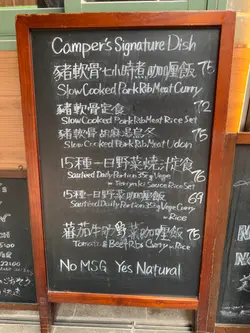 Camper's Signature Dish
豬軟骨七小時煮咖喱飯 75
Slow Cooked Pork Rib Meat Curry
豬軟骨定食 72
Slow Cooked Pork Rib Meat Rice Set
豬軟骨胡麻湯烏冬 75
Slow Cooked Pork Rib Meat Udon
15種一日野菜燒汁定食 75
Sauteed Daily Portion 35g Vege
in Teriyaki Sauce Rice Set
15種一日野菜咖喱飯 69
Sauteed Daily Portion 35g Vege Curry
in Rice
蕃茄牛肋野菜咖喱飯 75
Tomato & Beef Rib Curry in Rice
No MSG Yes Natural